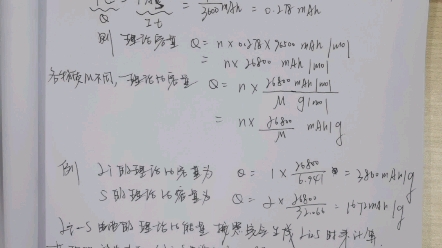 Q It = 1/3600 mAh = 0.278 mAh
则 理论容量 Q = n × 0.278 × 96500 mAh/mol
= n × 26800 mAh/mol
各物质M不同, 理论比容量 Q = n × 26800 mAh/mol / M g/mol
= n × 26800/M mAh/g
例 Li的理论比容量为 Q = 1 × 26800/6.941 = 3860 mAh/g
S的理论比容量为 Q = 2 × 26800/32.066 = 1672 mAh/g
Li-S 电池的理论比能量 生成 Li₂S 时来计算